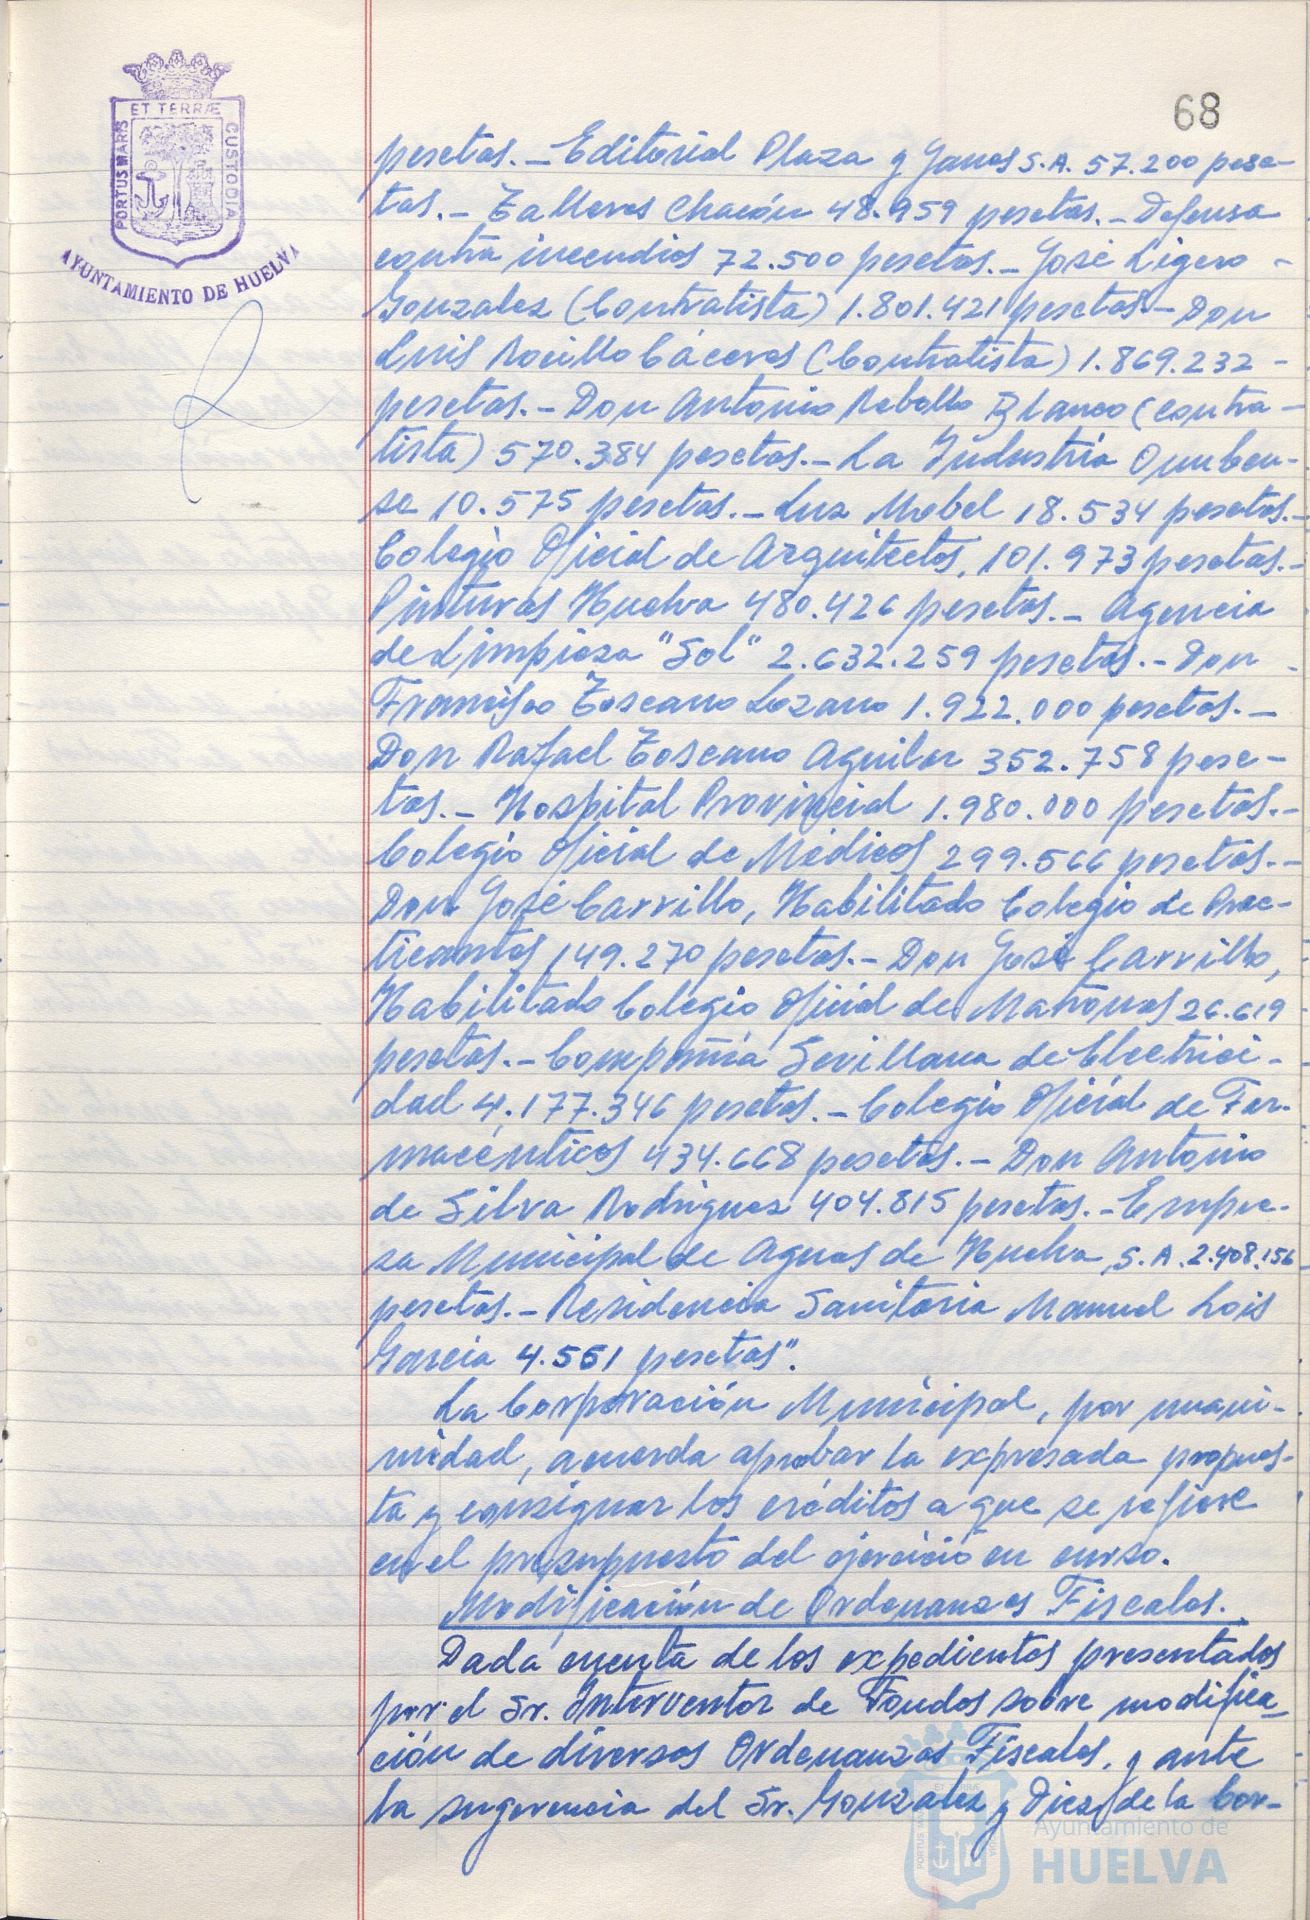 68
ET TERRÆ
PORTUS MARIS
CUSTODIA
AYUNTAMIENTO DE HUELVA
pesetas.- Editorial Plaza y Janes S.A. 57.200 pese-
tas.- Talleres Chacón 48.959 pesetas.- Defensa
contra incendios 72.500 pesetas.- José Ligero -
Gonzalez (Contratista) 1.801.421 pesetas.- Don
Luis Rocillo Cáceres (Contratista) 1.869.232 -
pesetas.- Don Antonio Rebollo Blanco (Contra-
tista) 570.384 pesetas.- La Industria Onuben-
se 10.575 pesetas.- Luz Mobel 18.534 pesetas.-
Colegio Oficial de Arquitectos, 101.973 pesetas.-
Pinturas Huelva 480.426 pesetas.- Agencia
de Limpieza "Sol" 2.632.259 pesetas.- Don -
Francisco Toscano Lozano 1.922.000 pesetas.-
Don Rafael Toscano Aguilar 352.758 pese-
tas.- Hospital Provincial 1.980.000 pesetas.-
Colegio Oficial de Médicos 299.566 pesetas.-
Don José Carrillo, Habilitado Colegio de Prac-
ticantes 149.270 pesetas.- Don José Carrillo,
Habilitado Colegio Oficial de Matronas 26.619
pesetas.- Compañía Sevillana de Electrici-
dad 4.177.346 pesetas.- Colegio Oficial de Far-
macéuticos 434.668 pesetas.- Don Antonio
de Silva Rodriguez 404.815 pesetas.- Empre-
sa Municipal de Aguas de Huelva, S.A. 2.408.156
pesetas.- Residencia Sanitaria Manuel Lois
Garcia 4.551 pesetas".
La Corporación Municipal, por unani-
midad, acuerda aprobar la expresada propues-
ta y consignar los créditos a que se refiere
en el presupuesto del ejercicio en curso.
Modificación de Ordenanzas Fiscales.
Dada cuenta de los expedientes presentados
por el Sr. Interventor de Fondos sobre modifica-
ción de diversas Ordenanzas Fiscales, y ante
la sugerencia del Sr. Gonzalez y Diez de la Cor-
Ayuntamiento de
HUELVA